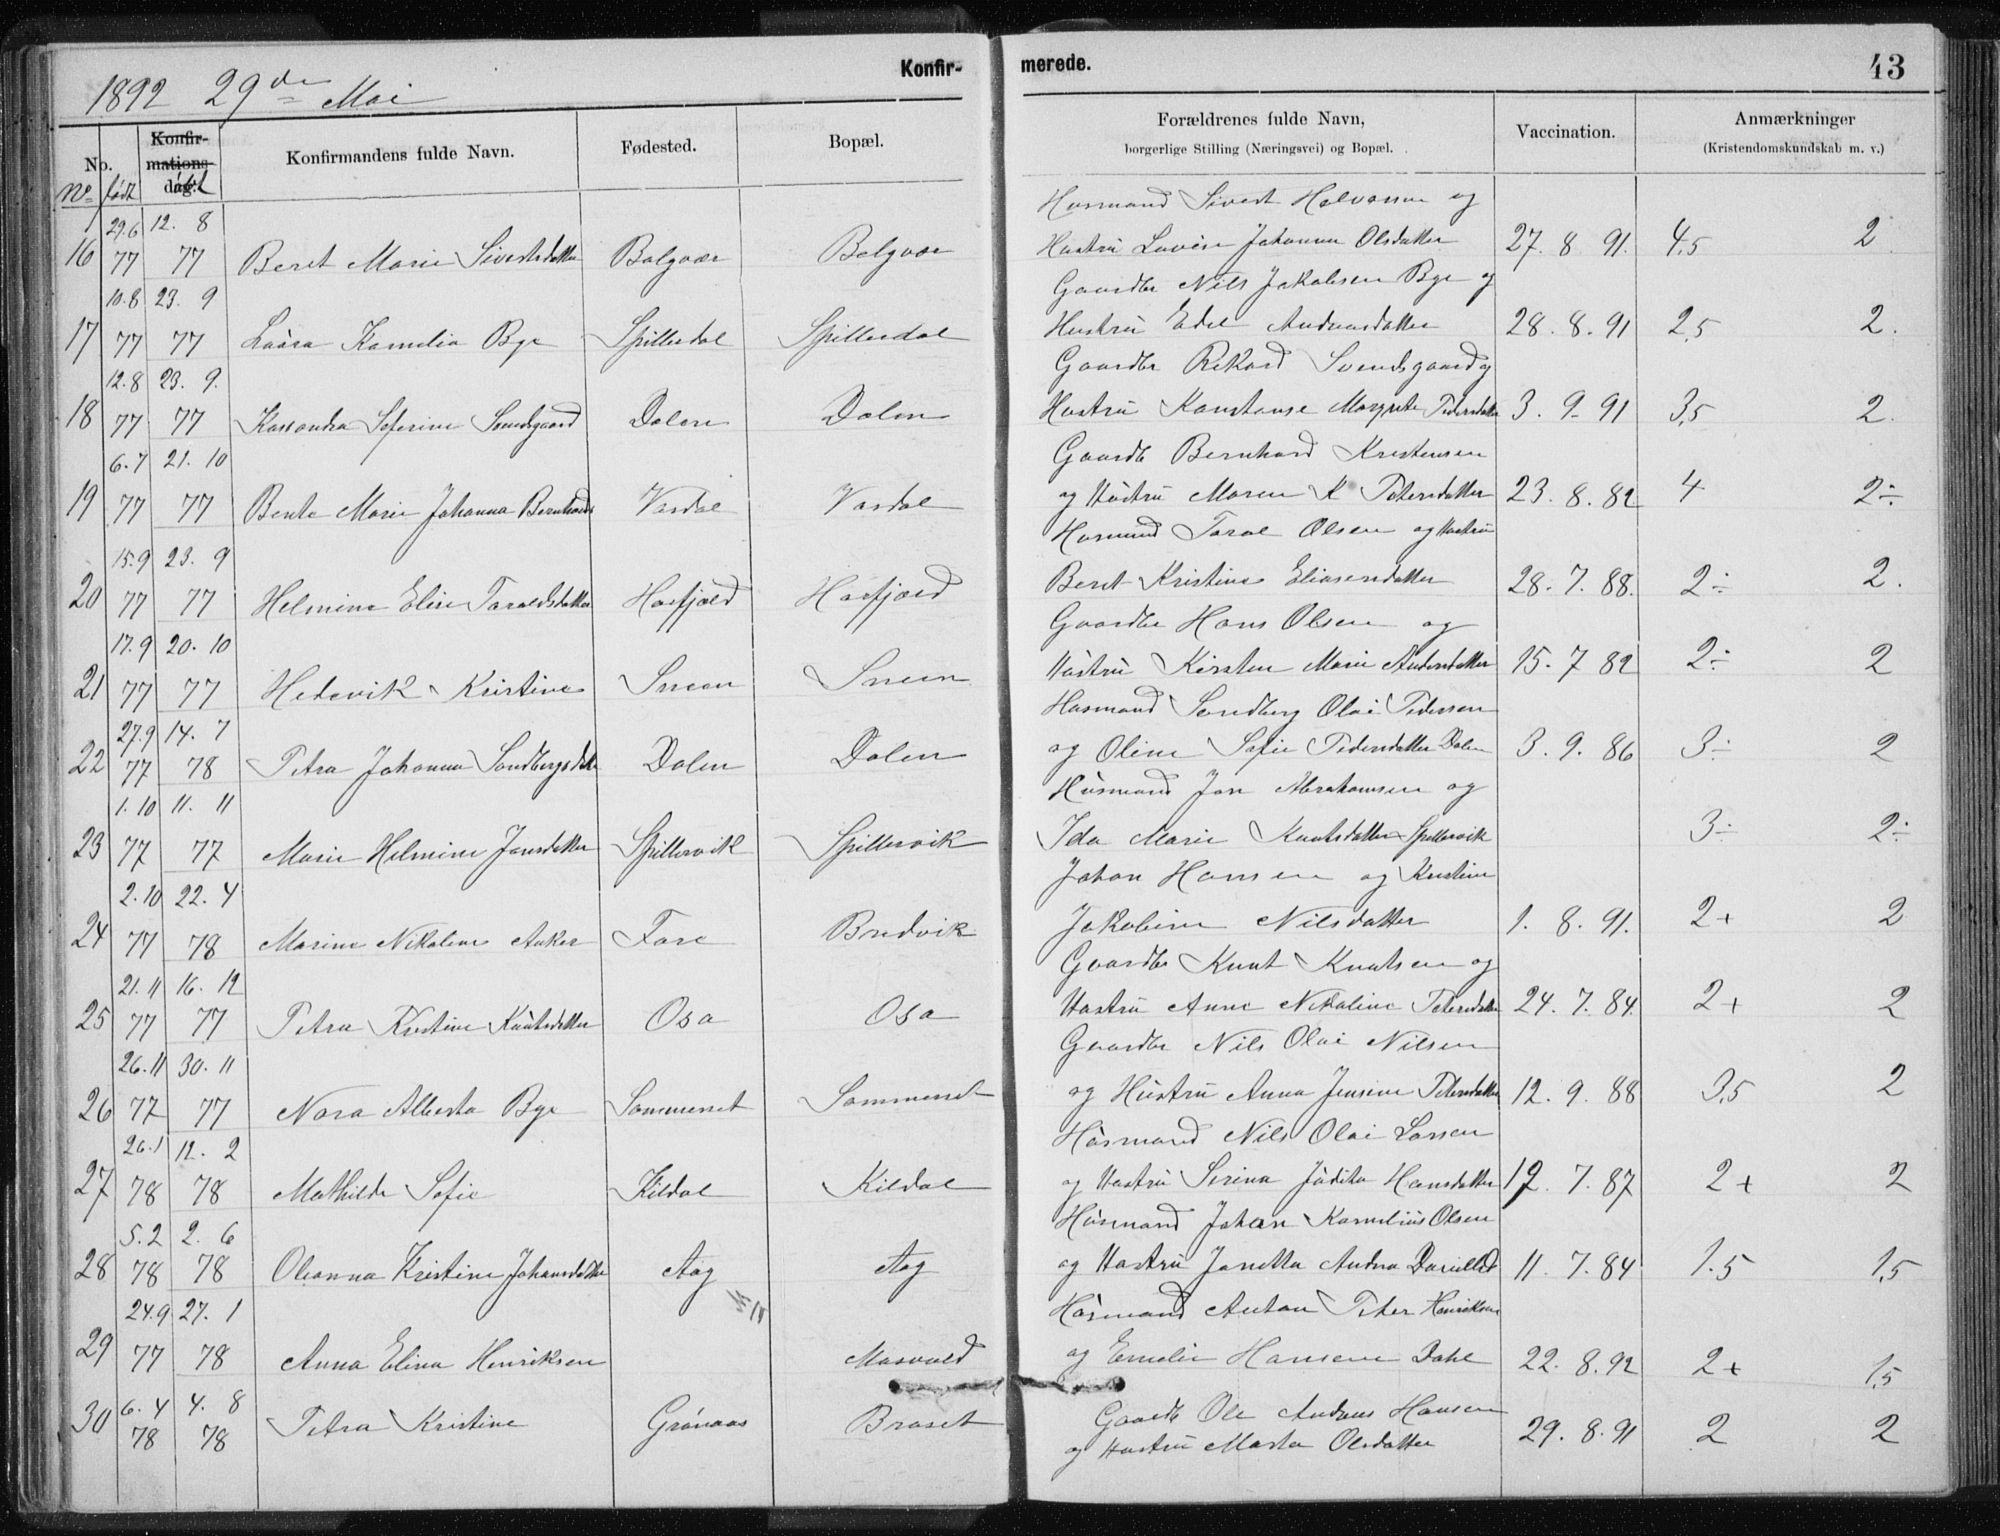 1892 29de Mai
Konfirmerede.
43
No. Konfirmationsdag. Konfirmandens fulde Navn. Fødested. Bopæl. Forældrenes fulde Navn, borgerlige Stilling (Næringsvei) og Bopæl. Vaccination. Anmærkninger (Kristendomskundskab m. v.)
No født døbt
29.6 12. 8 Husmand Sivert Halvorsen og
16 77 77 Beret Marie Sivertsdatter Bolgvær Bolgvær Hustru Lovise Johanna Olsdatter 27. 8 91. 4,5 2
10.8 23. 9 Gaardbr Nils Jakobsen Bye og
17 77 77 Laura Kamilia Bye Spilderdal Spilderdal Hustru Edel Andreasdatter 28. 8. 91 2,5 2.
12.8 23. 9. Gaardbr Rikard Svendsgaard og
18 77 77 Kassandra Seferine Svendsgaard Dalen Dalen Hustru Konstanse Margrete Pedersdatter 3. 9. 91 3,5 2.
6.7 21. 10 Gaardb Bernhard Kristensen
19 77 77 Bente Marie Johanna Bernhards Vardal Vardal og Hustru Maren K Petersdatter 23. 8. 82 4 2÷
15.9 23. 9 Husmand Taral Olsen og Hustru
20 77 77 Helmine Elise Taraldsdatter Havfjeld Havfjeld Beret Kristine Eliasendatter 28. 7. 88. 2÷ 2.
17.9 20. 10 Gaardbr Hans Olsen og
21 77 77 Hedevik Kristine Sneen Sneen Hustru Kirsten Marie Andersdatter 15. 7 82 2÷ 2
27.9 14. 7 Husmand Sandberg Olai Pedersen
22 77 78 Petra Johanna Sandbergsdtr Dalen Dalen og Oline Sofie Pedersdatter Dalen 3. 9. 86 3÷ 2
1.10 11. 11 Husmand Jon Abrahamsen og
23 77 77 Marie Helmine Jonsdatter Spillervik Spillervik Ida Marie Knutsdatter Spillervik 3÷ 2÷
2.10 22. 4 Johan Hansen og Kristine
24 77 78 Marine Nikoline Anker Fore Bredvik Jakobine Nilsdatter 1. 8. 91. 2+ 2
21.11 16. 12 Gaardbr Knut Knutsen og
25 77 77 Petra Kristine Knutsdatter Osa Osa Hustru Anne Nikoline Petersdatter 24. 7. 84. 2+ 2
26.11 30. 11 Gaardbr Nils Olai Nilsen
26 77 77 Nora Alberta Bye Sommerset Sommerset og Hustru Anna Jensine Petersdatter 12. 9. 88 3,5 2
26.1 12. 2 Husmand Nils Olai Larsen
27 78 78 Mathilde Sofie Kildal Kildal og Hustru Serina Judita Hansdatter 12. 7. 87 2+ 2
5.2 2. 6 Husmand Johan Kornelius Olsen
28 78 78 Oleanna Kristine Johansdatter Aag Aag og Hustru Janetta Andrea Danielsd 11. 7. 84 1.5 1,5
24.9 27. 1 Husmand Anton Peter Henriksen
29 77 78 Anna Elina Henriksen Masvold og Emelie Hansen Dahl 22. 8. 92 2+ 1,5
6.4 4. 8 Gaardb Ole Andreas Hansen
30 78 78 Petra Kristine Grønaas Braset og Hustru Marta Olsdatter 29. 8. 91 2 2